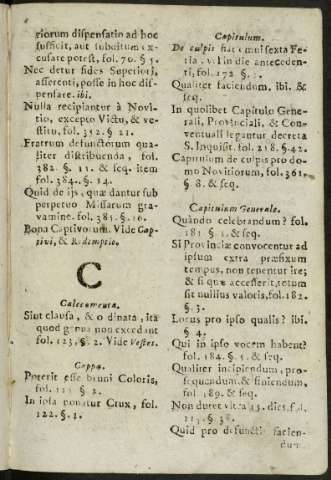 riorum dispensatio ad hoc
sufficit, aut subditum ex-
cusare potest, fol. 70. § 5.
Nec detur fides Superiori,
asserenti, posse in hoc dis-
pensare. ibi.
Nulla recipiantur à Novi-
tio, excepto Victu, & ve-
stitu, fol. 352. § 21.
Fratrum defunctorum qua-
liter distribuenda, fol.
382. § 11. & seq. item
fol. 384. § 14.
Quid de ijs, quæ dantur sub
perpetuo Missarum gra-
vamine. fol. 385. § 16.
Bona Captivorum. Vide Cap-
tivi, & Redemptio.
C
Calceamenta.
Sint clausa, & ordinata, ita
quod genua non excedant
fol. 123. § 2. Vide Vestes.
Cappa.
Poterit esse bruni Coloris,
fol. § 2.
In ipsa ponatur Crux, fol.
122. § 1.
Capitulum.
De culpis fiat omni sexta Fe-
ria, vel in die anteceden-
ti, fol. 172 §
Qualiter faciendum, ibi. &
seq.
In quolibet Capitulo Gene-
rali, Provinciali, & Con-
ventuali legantur decreta
S. Inquisit. fol. 218. § 42.
Capitulum de culpis pro do-
mo Novitiorum, fol. 361.
§ 8. & seq.
Capitulum Generale.
Quando celebrandum? fol.
181 § 1. & seq.
Si Provinciæ convocentur ad
ipsum extra præfixum
tempus, non tenentur ire;
& si quæ accesserit, totum
sit nullius valoris, fol. 182.
§ 3.
Locus pro ipso qualis? ibi.
§ 4.
Qui in ipso vocem habent?
fol. 184. § 5. & seq.
Qualiter incipiendum, pro-
sequendum, & finiendum,
fol. 189. & seq.
Non duret ultra 15. dies. fol.
§
Quid pro defunctis facien-
dum.